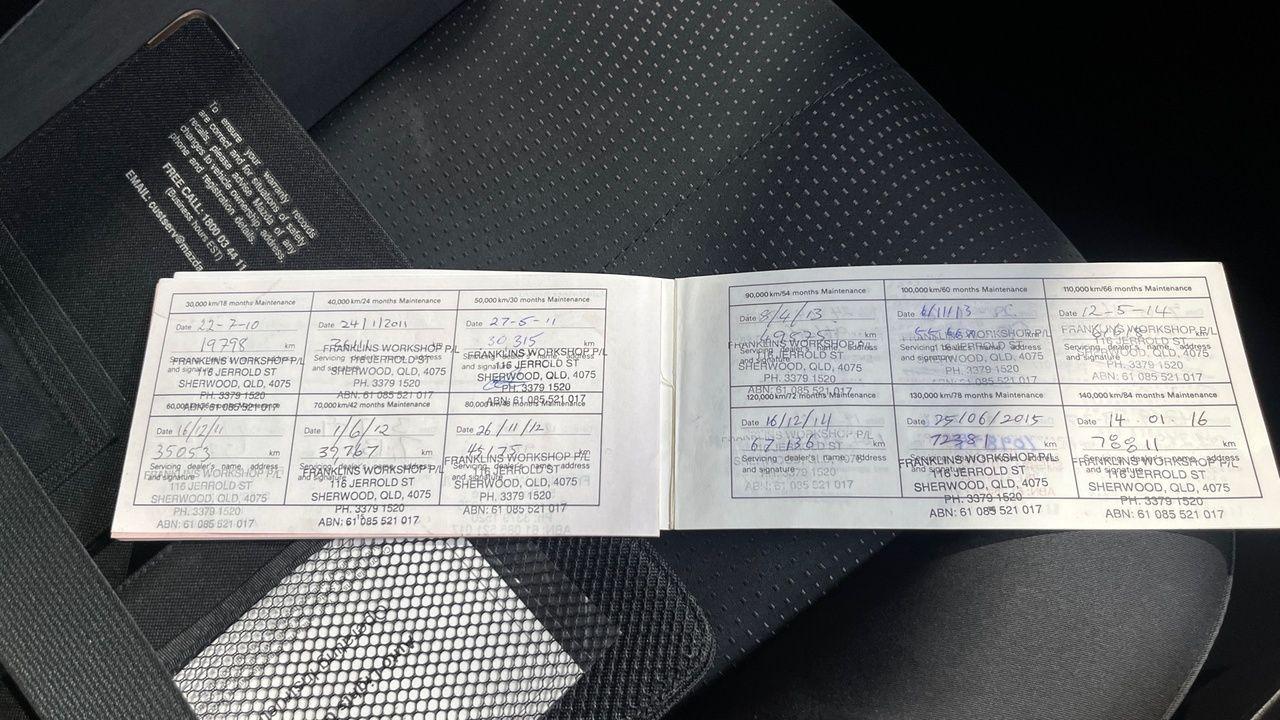 To ensure your warranty records
are correct and for advices of safety
recalls, please advise Mazda of any
changes to vehicle ownership, address,
phone and registration details.
FREE CALL 1800 03 44 11
(Business hours EST)
EMAIL
30,000 km/18 months Maintenance
Date 22-7-10
19798 km
Servicing dealer's name, address
and signature
FRANKLINS WORKSHOP P/L
116 JERROLD ST
SHERWOOD, QLD, 4075
PH: 3379 1520
ABN: 61 085 521 017
40,000 km/24 months Maintenance
Date 24/1/2011
km
FRANKLINS WORKSHOP P/L
116 JERROLD ST
SHERWOOD, QLD, 4075
PH: 3379 1520
ABN: 61 085 521 017
50,000 km/30 months Maintenance
Date 27-5-11
30 315 km
FRANKLINS WORKSHOP P/L
116 JERROLD ST
SHERWOOD, QLD, 4075
PH: 3379 1520
ABN: 61 085 521 017
Date 16/12/11
35053 km
Servicing dealer's name, address
and signature
FRANKLINS WORKSHOP P/L
116 JERROLD ST
SHERWOOD, QLD, 4075
PH: 3379 1520
ABN: 61 085 521 017
70,000 km/42 months Maintenance
Date 1/6/12
39767 km
Servicing dealer's name, address
and signature
FRANKLINS WORKSHOP P/L
116 JERROLD ST
SHERWOOD, QLD, 4075
PH: 3379 1520
ABN: 61 085 521 017
80,000 km/48 months Maintenance
Date 26/11/12
km
Servicing dealer's name, address
and signature
FRANKLINS WORKSHOP P/L
116 JERROLD ST
SHERWOOD, QLD, 4075
PH: 3379 1520
ABN: 61 085 521 017
90,000 km/54 months Maintenance
Date 8/4/13
km
FRANKLINS WORKSHOP P/L
116 JERROLD ST
SHERWOOD, QLD, 4075
PH: 3379 1520
ABN: 61 085 521 017
100,000 km/60 months Maintenance
Date 6/11/13
km
FRANKLINS WORKSHOP P/L
116 JERROLD ST
SHERWOOD, QLD, 4075
PH: 3379 1520
110,000 km/66 months Maintenance
Date 12-5-14
km
FRANKLINS WORKSHOP P/L
116 JERROLD ST
SHERWOOD, QLD, 4075
PH: 3379 1520
ABN: 61 085 521 017
120,000 km/72 months Maintenance
Date 16/12/14
km
Servicing dealer's name, address
and signature
FRANKLINS WORKSHOP P/L
116 JERROLD ST
SHERWOOD, QLD, 4075
130,000 km/78 months Maintenance
Date 25/06/2015
72381 km
Servicing dealer's name, address
and signature
FRANKLINS WORKSHOP P/L
116 JERROLD ST
SHERWOOD, QLD, 4075
PH: 3379 1520
ABN: 61 085 521 017
140,000 km/84 months Maintenance
Date 14 . 01 . 16
km
Servicing dealer's name, address
and signature
FRANKLINS WORKSHOP P/L
116 JERROLD ST
SHERWOOD, QLD, 4075
PH: 3379 1520
ABN: 61 085 521 017